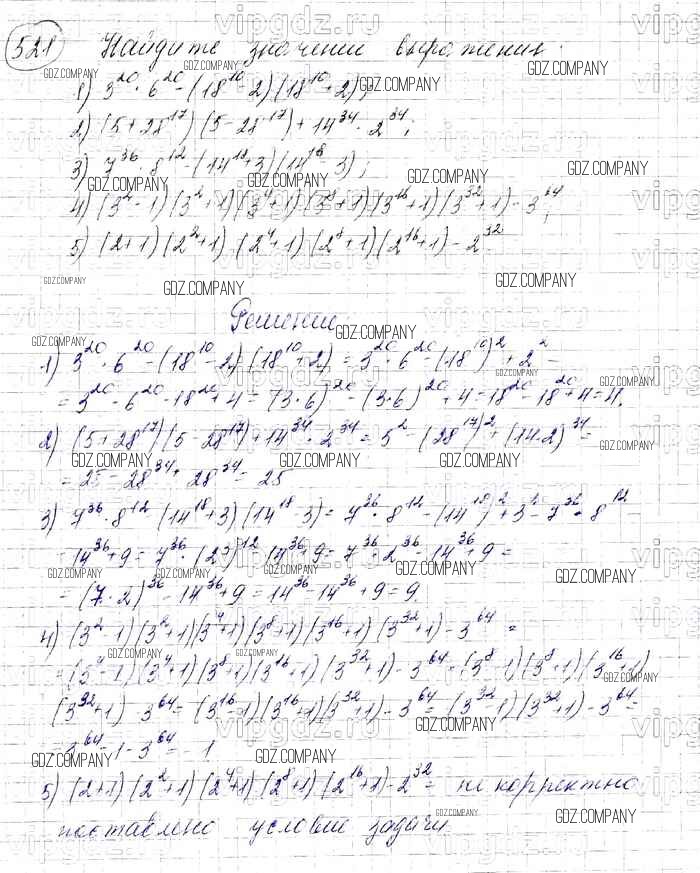 521 Найдите значении выражения:
1) 3^20 · 6^20 - (18^10 - 2)(18^10 + 2);
2) (5 + 28^17)(5 - 28^17) + 14^34 · 2^34;
3) 7^36 · 8^12 - (14^18 + 3)(14^18 - 3);
4) (3^2 - 1)(3^2 + 1)(3^4 + 1)(3^8 + 1)(3^16 + 1)(3^32 + 1) - 3^64;
5) (2+1)(2^2+1)(2^4+1)(2^8+1)(2^16+1) - 2^32.
Решение
1) 3^20 · 6^20 - (18^10 - 2)(18^10 + 2) = 3^20 · 6^20 - (18^10)^2 + 2^2 =
= 3^20 · 6^20 - 18^20 + 4 = (3·6)^20 - (3·6)^20 + 4 = 18^20 - 18^20 + 4 = 4.
2) (5 + 28^17)(5 - 28^17) + 14^34 · 2^34 = 5^2 - (28^17)^2 + (14·2)^34 =
= 25 - 28^34 + 28^34 = 25
3) 7^36 · 8^12 - (14^18 + 3)(14^18 - 3) = 7^36 · 8^12 - (14^18)^2 + 3^2 = 7^36 · 8^12 -
- 14^36 + 9 = 7^36 · (2^3)^12 - 14^36 + 9 = 7^36 · 2^36 - 14^36 + 9 =
= (7·2)^36 - 14^36 + 9 = 14^36 - 14^36 + 9 = 9.
4) (3^2 - 1)(3^2 + 1)(3^4 + 1)(3^8 + 1)(3^16 + 1)(3^32 + 1) - 3^64 =
= (3^4 - 1)(3^4 + 1)(3^8 + 1)(3^16 + 1)(3^32 + 1) - 3^64 = (3^8 - 1)(3^8 + 1)(3^16 + 1)
(3^32 + 1) - 3^64 = (3^16 - 1)(3^16 + 1)(3^32 + 1) - 3^64 = (3^32 - 1)(3^32 + 1) - 3^64 =
= 3^64 - 1 - 3^64 = - 1
5) (2+1)(2^2+1)(2^4+1)(2^8+1)(2^16+1) - 2^32 = не корректно
поставлено условие задачи